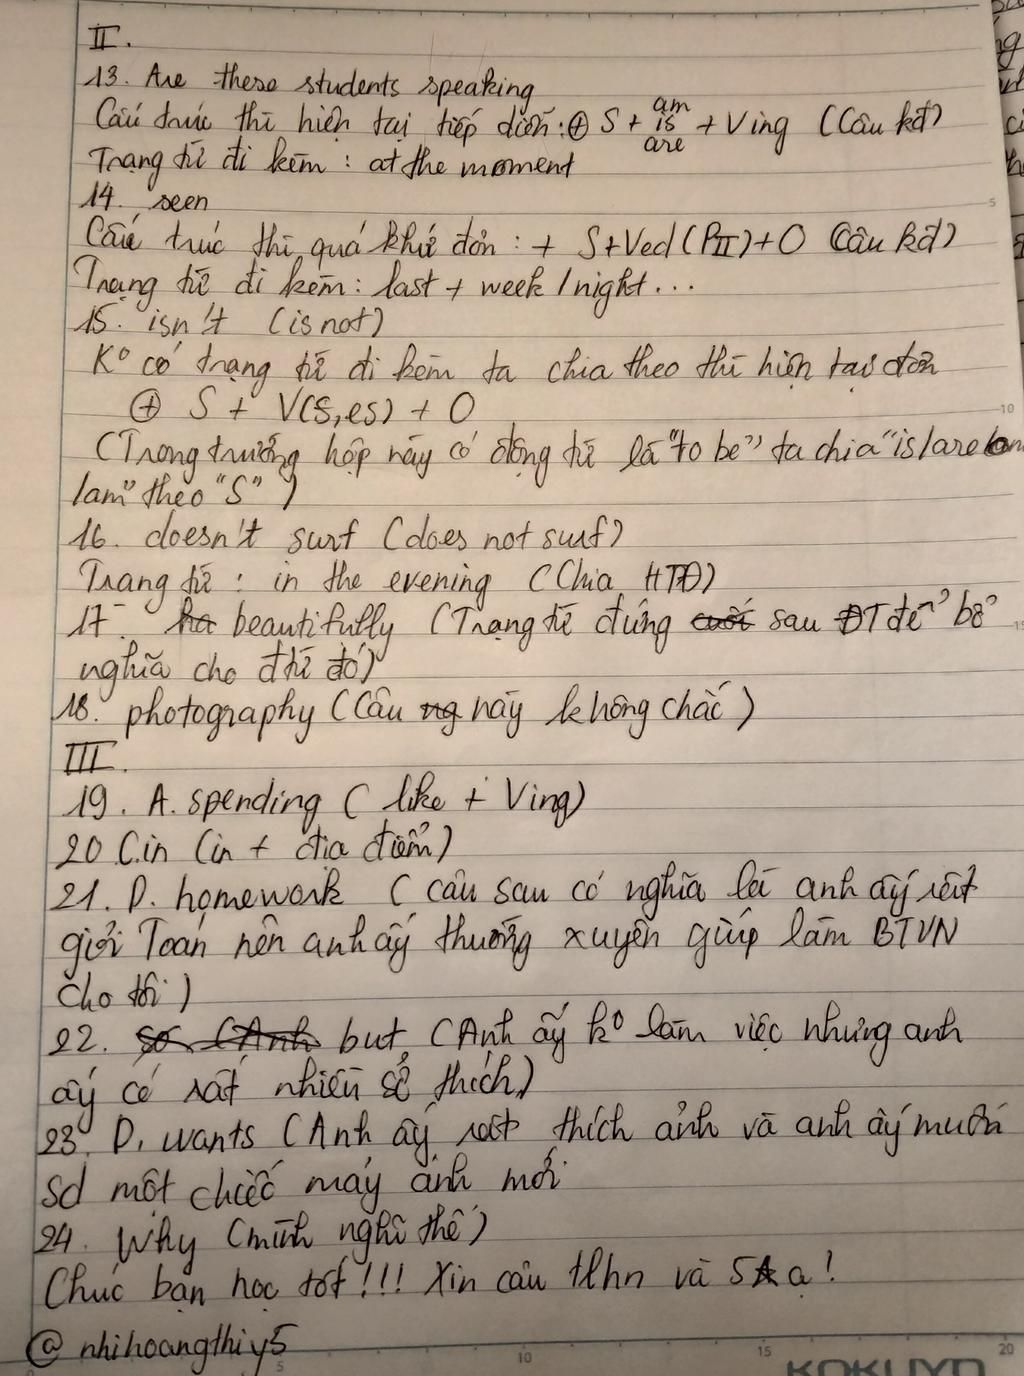 II.
13. Are these students speaking
Cấu trúc thì hiện tại tiếp diễn: ⊕ S + am/is/are + Ving (Câu kđ)
Trạng từ đi kèm : at the moment
14. seen
Cấu trúc thì quá khứ đơn : + S+Ved(PII)+O (Câu kđ)
Trạng từ đi kèm : last + week / night...
15. isn't (is not)
K° có trạng từ đi kèm ta chia theo thì hiện tại đơn
⊕ S + V(s,es) + O
(Trong trường hợp này có động từ là "to be" ta chia "is/are
/am" theo "S")
16. doesn't surf (does not surf)
Trạng từ : in the evening (Chia HTĐ)
17. beautifully (Trạng từ đứng sau ĐT để bổ
nghĩa cho đtừ đó)
18. photography (Câu này không chắc)
III.
19. A. spending ( like + Ving)
20 C.in (in + địa điểm)
21. D. homework ( câu sau có nghĩa là anh ấy rất
giỏi Toán nên anh ấy thường xuyên giúp làm BTVN
cho tôi )
22. but (Anh ấy k° làm việc nhưng anh
ấy có rất nhiều sở thích)
23. D. wants (Anh ấy rất thích ảnh và anh ấy muốn
sd một chiếc máy ảnh mới
24. Why (mình nghĩ thế)
Chúc bạn học tốt!!! Xin câu tlhn và 5★ ạ!
@nhihoangthiy5
5 10 15 20
KOKUYO